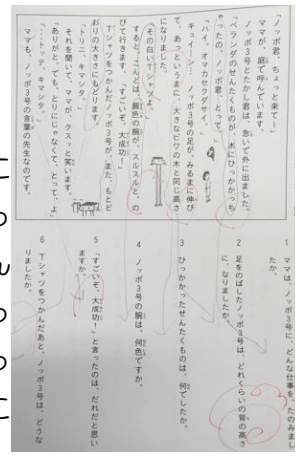 「ノッポ君、ちょっと来てー!」
ママが、庭で呼んでいます。
ノッポ3号とたかし君は、急いで外に出ました。
「ベランダのせんたくものが、木にひっかかっち
ゃったの。ノッポ君、とって。」
「ハイ、オマカセクダサイ。」
キュイーン…。ノッポ3号の足が、みるまに伸び
て、あっというまに、大きなビワの木と同じ高さ
になりました。
「その白いTシャツよ。」
すると、こんどは、銀色の腕が、スルスルと、の
びて行きます。「すごいぞ、大成功!」
Tシャツをつかんだノッポ3号が、また、もとど
おりの大きさにもどります。
「トリニ、キマシタ。」
それを聞いて、ママが、クスっと笑います。
「ありがと。でも、とりにじゃなくて、とって、よ」
「…トッテ、キマシタ。」
ママも、ノッポ3号の言葉の先生なのです。
1 ママは、ノッポ3号に、どんな仕事を、たのみまし
たか。
2 足をのばしたノッポ3号は、どれくらいの背の高さ
に、なりましたか。
3 ひっかかったせんたくものは、何でしたか。
4 ノッポ3号の腕は、何色ですか。
5 「すごいぞ、大成功!」と言ったのは、だれだと思い
ますか。
6 Tシャツをつかんだあと、ノッポ3号は、どうな
りましたか。